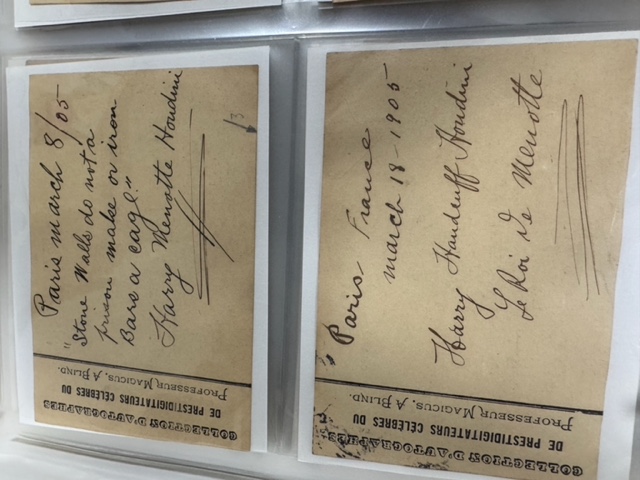 Paris march 8/05
"Stone Walls do not a
prison make or iron
Bars a cage."
Harry Menotte Houdini
13
COLLECTION D'AUTOGRAPHES
DE PRESTIDIGITATEURS CÉLÈBRES DU
PROFESSEUR MAGICUS, A BLIND.
"Paris, France
march 18-1905
Harry Handcuff Houdini
Le Roi de Menotte
COLLECTION D'AUTOGRAPHES
DE PRESTIDIGITATEURS CÉLÈBRES DU
PROFESSEUR MAGICUS, A BLIND.